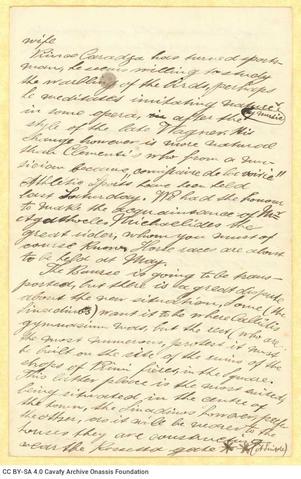 wife
Kimon Caradja has turned sports-
man, he seems willing to study
the warbling of the birds, perhaps
he meditates imitating nature's
music
in some opera, after the
style of the late Wagner. His
change however is more natural
than Clementi's who from a mu-
sician became
Athletic sports have been held
last Saturday. We had the honour
to make the acquaintance of Mr
Agathocles the
great rider, whom you must of
course know. Horse races are about
to be held at May.
The is going to be trans-
ported, but there is a great dispute
about the new situation, some (the
) want it to be where
gymnasium was, but the rest, who are
the most numerous, protest it must
be built on the side of the ruins of the
shops of in the Square.
This latter place is the most suited,
being situated, in the centre of
the town, the however prefer
the other, as it will be nearer to the
houses they are
near the Rosetta gate
CC BY-SA 4.0 Cavafy Archive Onassis Foundation